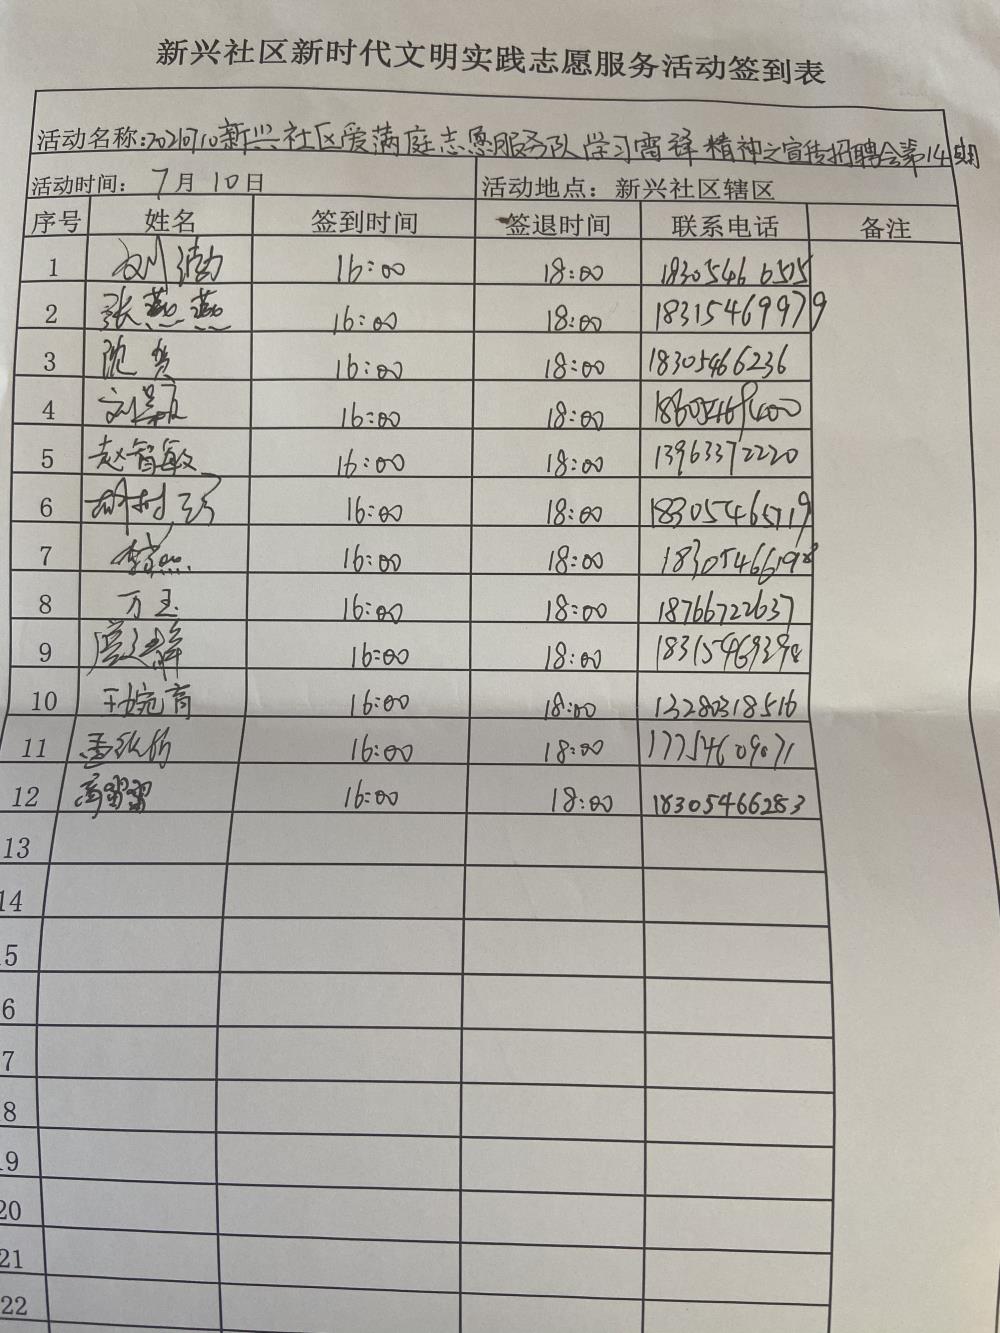 新兴社区新时代文明实践志愿服务活动签到表
活动名称:20210710新兴社区爱满庭志愿服务队学习雷锋精神之宣传招聘会第14期
活动时间： 7月10日 活动地点：新兴社区辖区
序号 姓名 签到时间 签退时间 联系电话 备注
1 16:00 18:00
2 张燕燕 16:00 18:00 18315469979
3 16:00 18:00 18305466236
4 16:00 18:00
5 赵智敏 16:00 18:00 13963372220
6 16:00 18:00 18305465719
7 16:00 18:00
8 万玉 16:00 18:00 18766722637
9 16:00 18:00
10 王婉育 16:00 18:00 13280318516
11 16:00 18:00 17754609071
12 16:00 18:00 18305466283
13
14
5
6
7
8
19
20
21
22